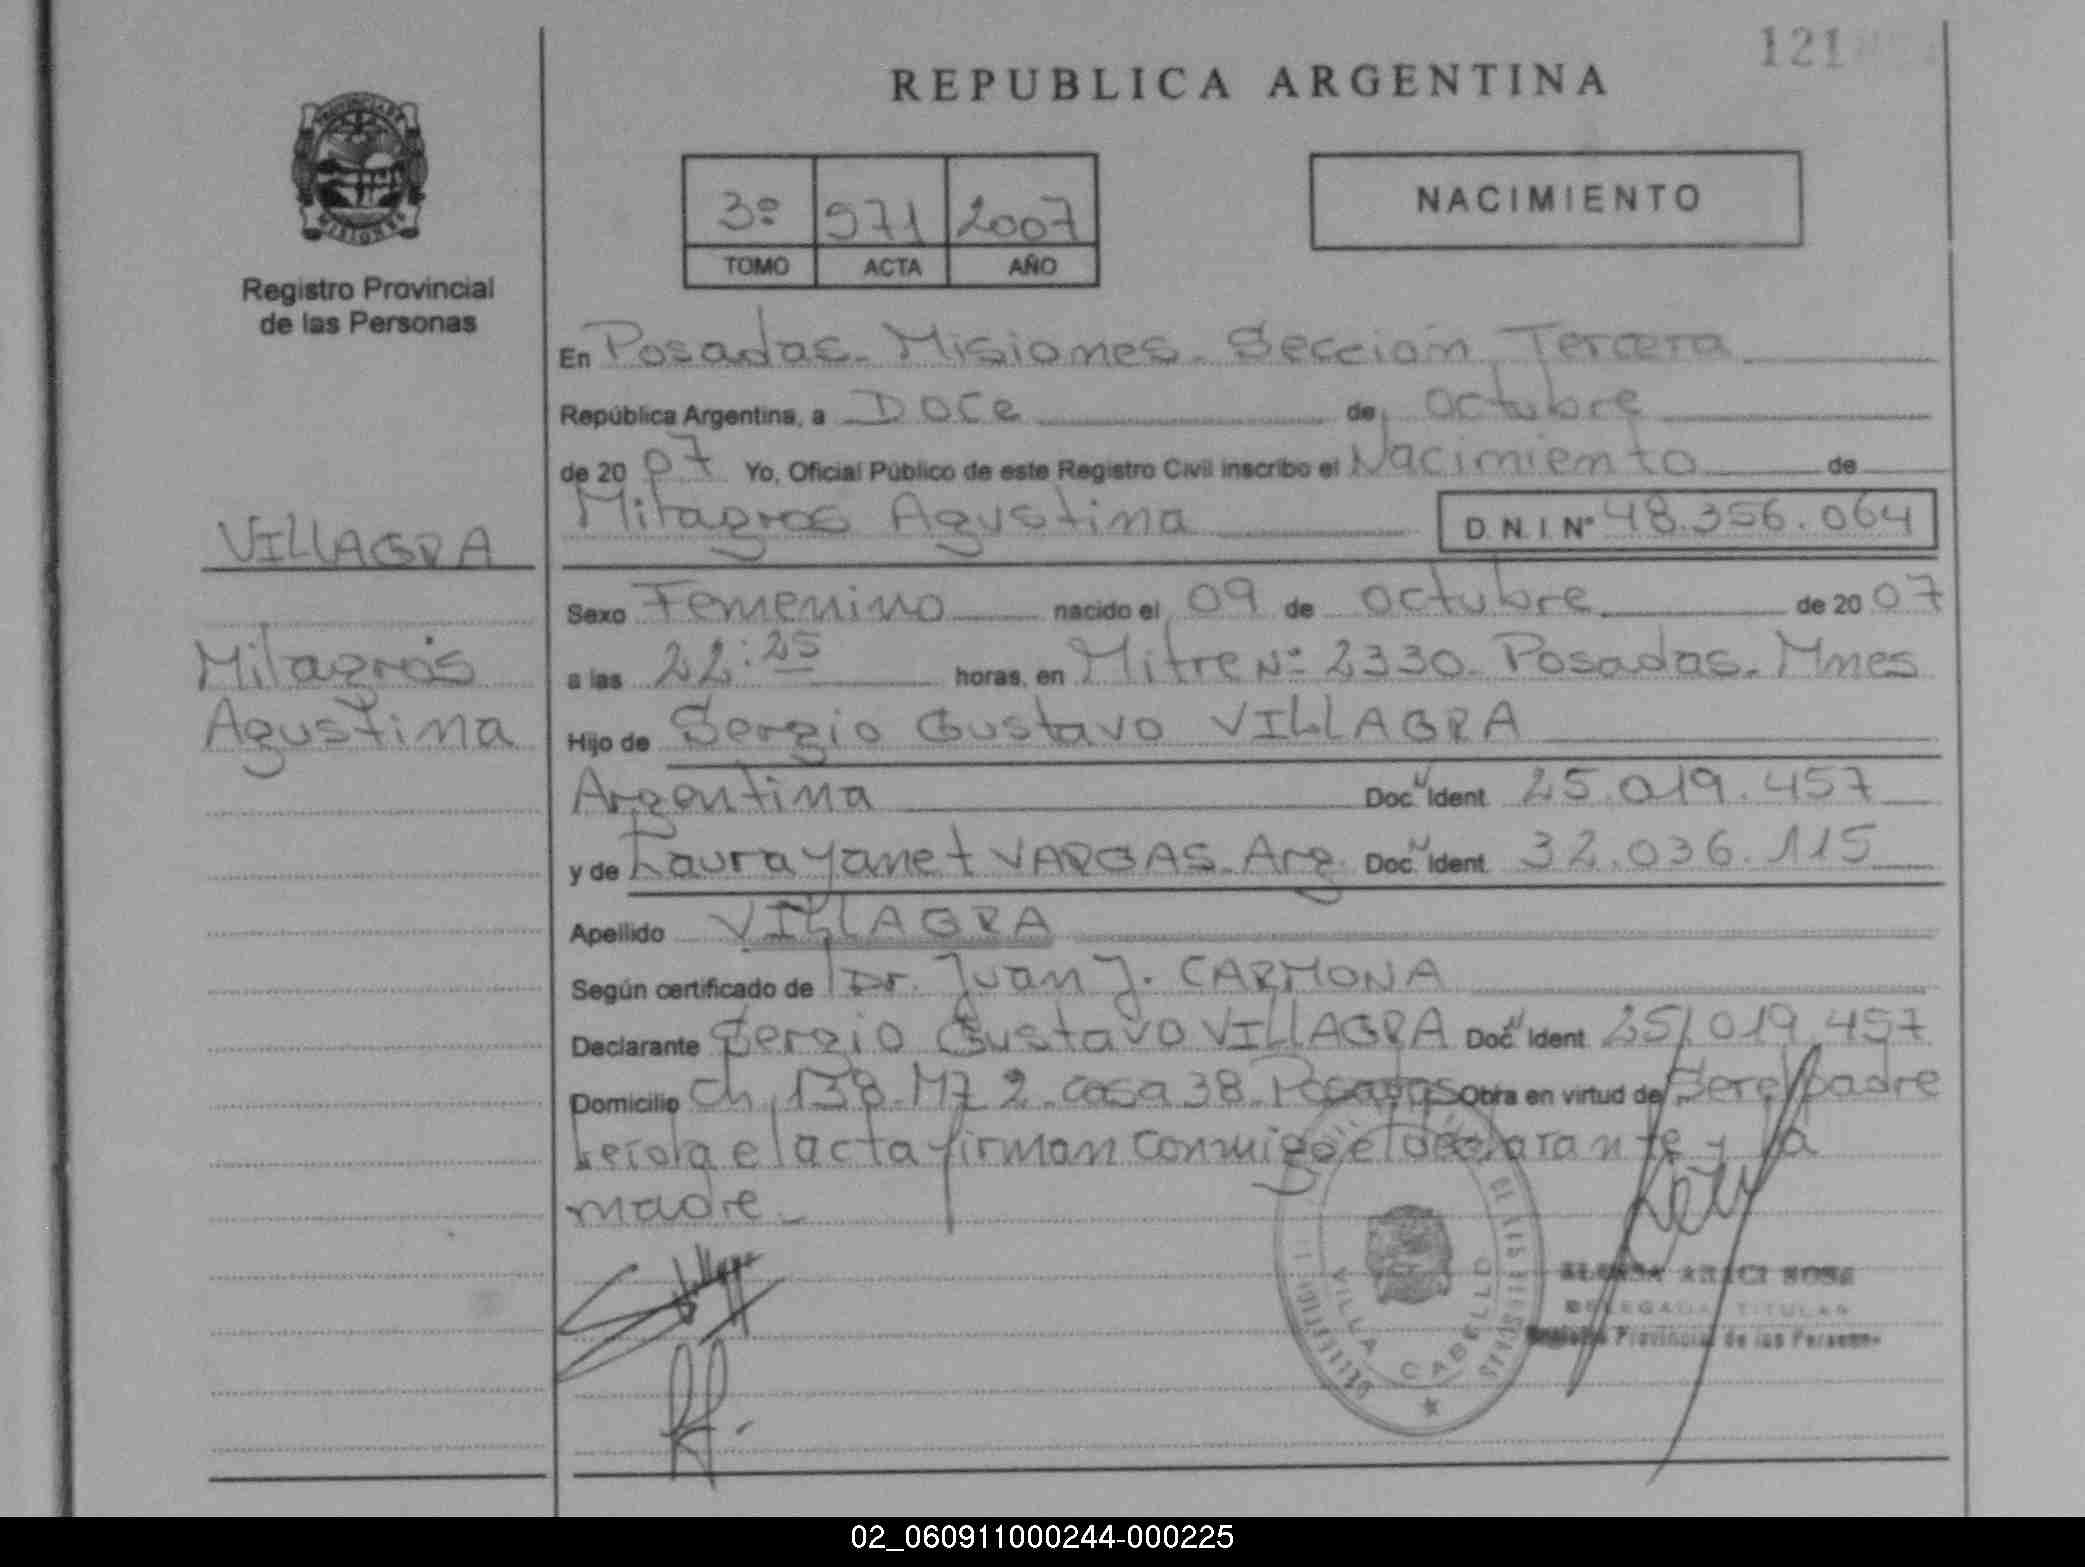 121
REPUBLICA ARGENTINA
PROVINCIA DE
MISIONES
Registro Provincial
de las Personas
3º 971 2007
TOMO ACTA AÑO
NACIMIENTO
En Posadas. Misiones. Sección Tercera
República Argentina, a Doce de Octubre
de 20 07 Yo, Oficial Público de este Registro Civil inscribo el Nacimiento de
Milagros Agustina D.N.I. Nº 48.356.064
VILLAGRA
Milagros
Agustina
Sexo Femenino nacido el 09 de Octubre de 20 07
a las 22:25 horas, en Mitre Nº 2330. Posadas. Mnes
Hijo de Sergio Gustavo VILLAGRA
Argentina Doc. Ident 25.019.457
y de Laura Yanet VARGAS. Arg. Doc. Ident 32.036.115
Apellido VILLAGRA
Según certificado de Dr. Juan J. CARMONA
Declarante Sergio Gustavo VILLAGRA Doc. Ident 25.019.457
Domicilio Ch 138 Mz 2 casa 38 Posadas Obra en virtud de Ser el padre
Leida el acta firman conmigo el declarante y la
madre.
VILLA CABELLO
ARACI SOSA
DELEGADA TITULAR
Registro Provincial de las Personas
02_060911000244-000225